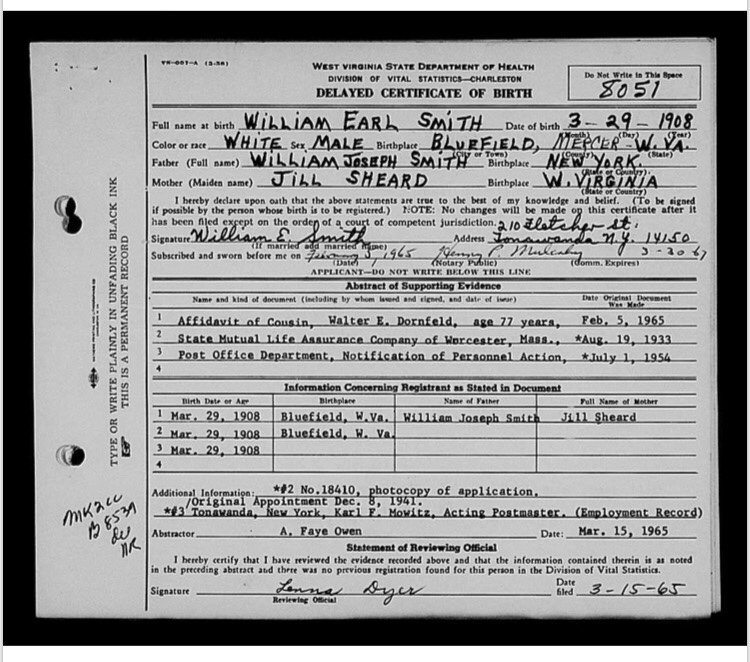 VR-007-A (3-58)
WEST VIRGINIA STATE DEPARTMENT OF HEALTH
DIVISION OF VITAL STATISTICS—CHARLESTON
DELAYED CERTIFICATE OF BIRTH
Do Not Write in This Space
8051
Full name at birth WILLIAM EARL SMITH Date of birth 3-29-1908
(Month) (Day) (Year)
Color or race WHITE Sex MALE Birthplace BLUEFIELD, MERCER-W. VA.
(City or Town) (County) (State)
Father (Full name) WILLIAM JOSEPH SMITH Birthplace NEW YORK.
(State or Country)
Mother (Maiden name) JILL SHEARD Birthplace W. VIRGINIA
(State or Country)
I hereby declare upon oath that the above statements are true to the best of my knowledge and belief. (To be signed
if possible by the person whose birth is to be registered.) NOTE: No changes will be made on this certificate after it
has been filed except on the order of a court of competent jurisdiction. 210 Fletcher St.
Signature William E. Smith Address Tonawanda N.Y. 14150
(If married add married name)
Subscribed and sworn before me on 1965 Henry P. 3-30-67
(Date) (Notary Public) (Comm. Expires)
APPLICANT—DO NOT WRITE BELOW THIS LINE
Abstract of Supporting Evidence
Name and kind of document (including by whom issued and signed, and date of issue) Date Original Document Was Made
1 Affidavit of Cousin, Walter E. Dornfeld, age 77 years, Feb. 5, 1965
2 State Mutual Life Assurance Company of Worcester, Mass., *Aug. 19, 1933
3 Post Office Department, Notification of Personnel Action, *July 1, 1954
4
Information Concerning Registrant as Stated in Document
Birth Date or Age Birthplace Name of Father Full Name of Mother
1 Mar. 29, 1908 Bluefield, W.Va. William Joseph Smith Jill Sheard
2 Mar. 29, 1908 Bluefield, W. Va.
3 Mar. 29, 1908
4
Additional Information: *#2 No.18410, photocopy of application.
/Original Appointment Dec. 8, 1941.
*#3 Tonawanda, New York, Karl F. Mowitz, Acting Postmaster. (Employment Record)
Abstractor A. Faye Owen Date: Mar. 15, 1965
Statement of Reviewing Official
I hereby certify that I have reviewed the evidence recorded above and that the information contained therein is as noted
in the preceding abstract and there was no previous registration found for this person in the Division of Vital Statistics.
Signature Lenna Dyer Date filed 3-15-65
Reviewing Official
TYPE OR WRITE PLAINLY IN UNFADING BLACK INK
THIS IS A PERMANENT RECORD